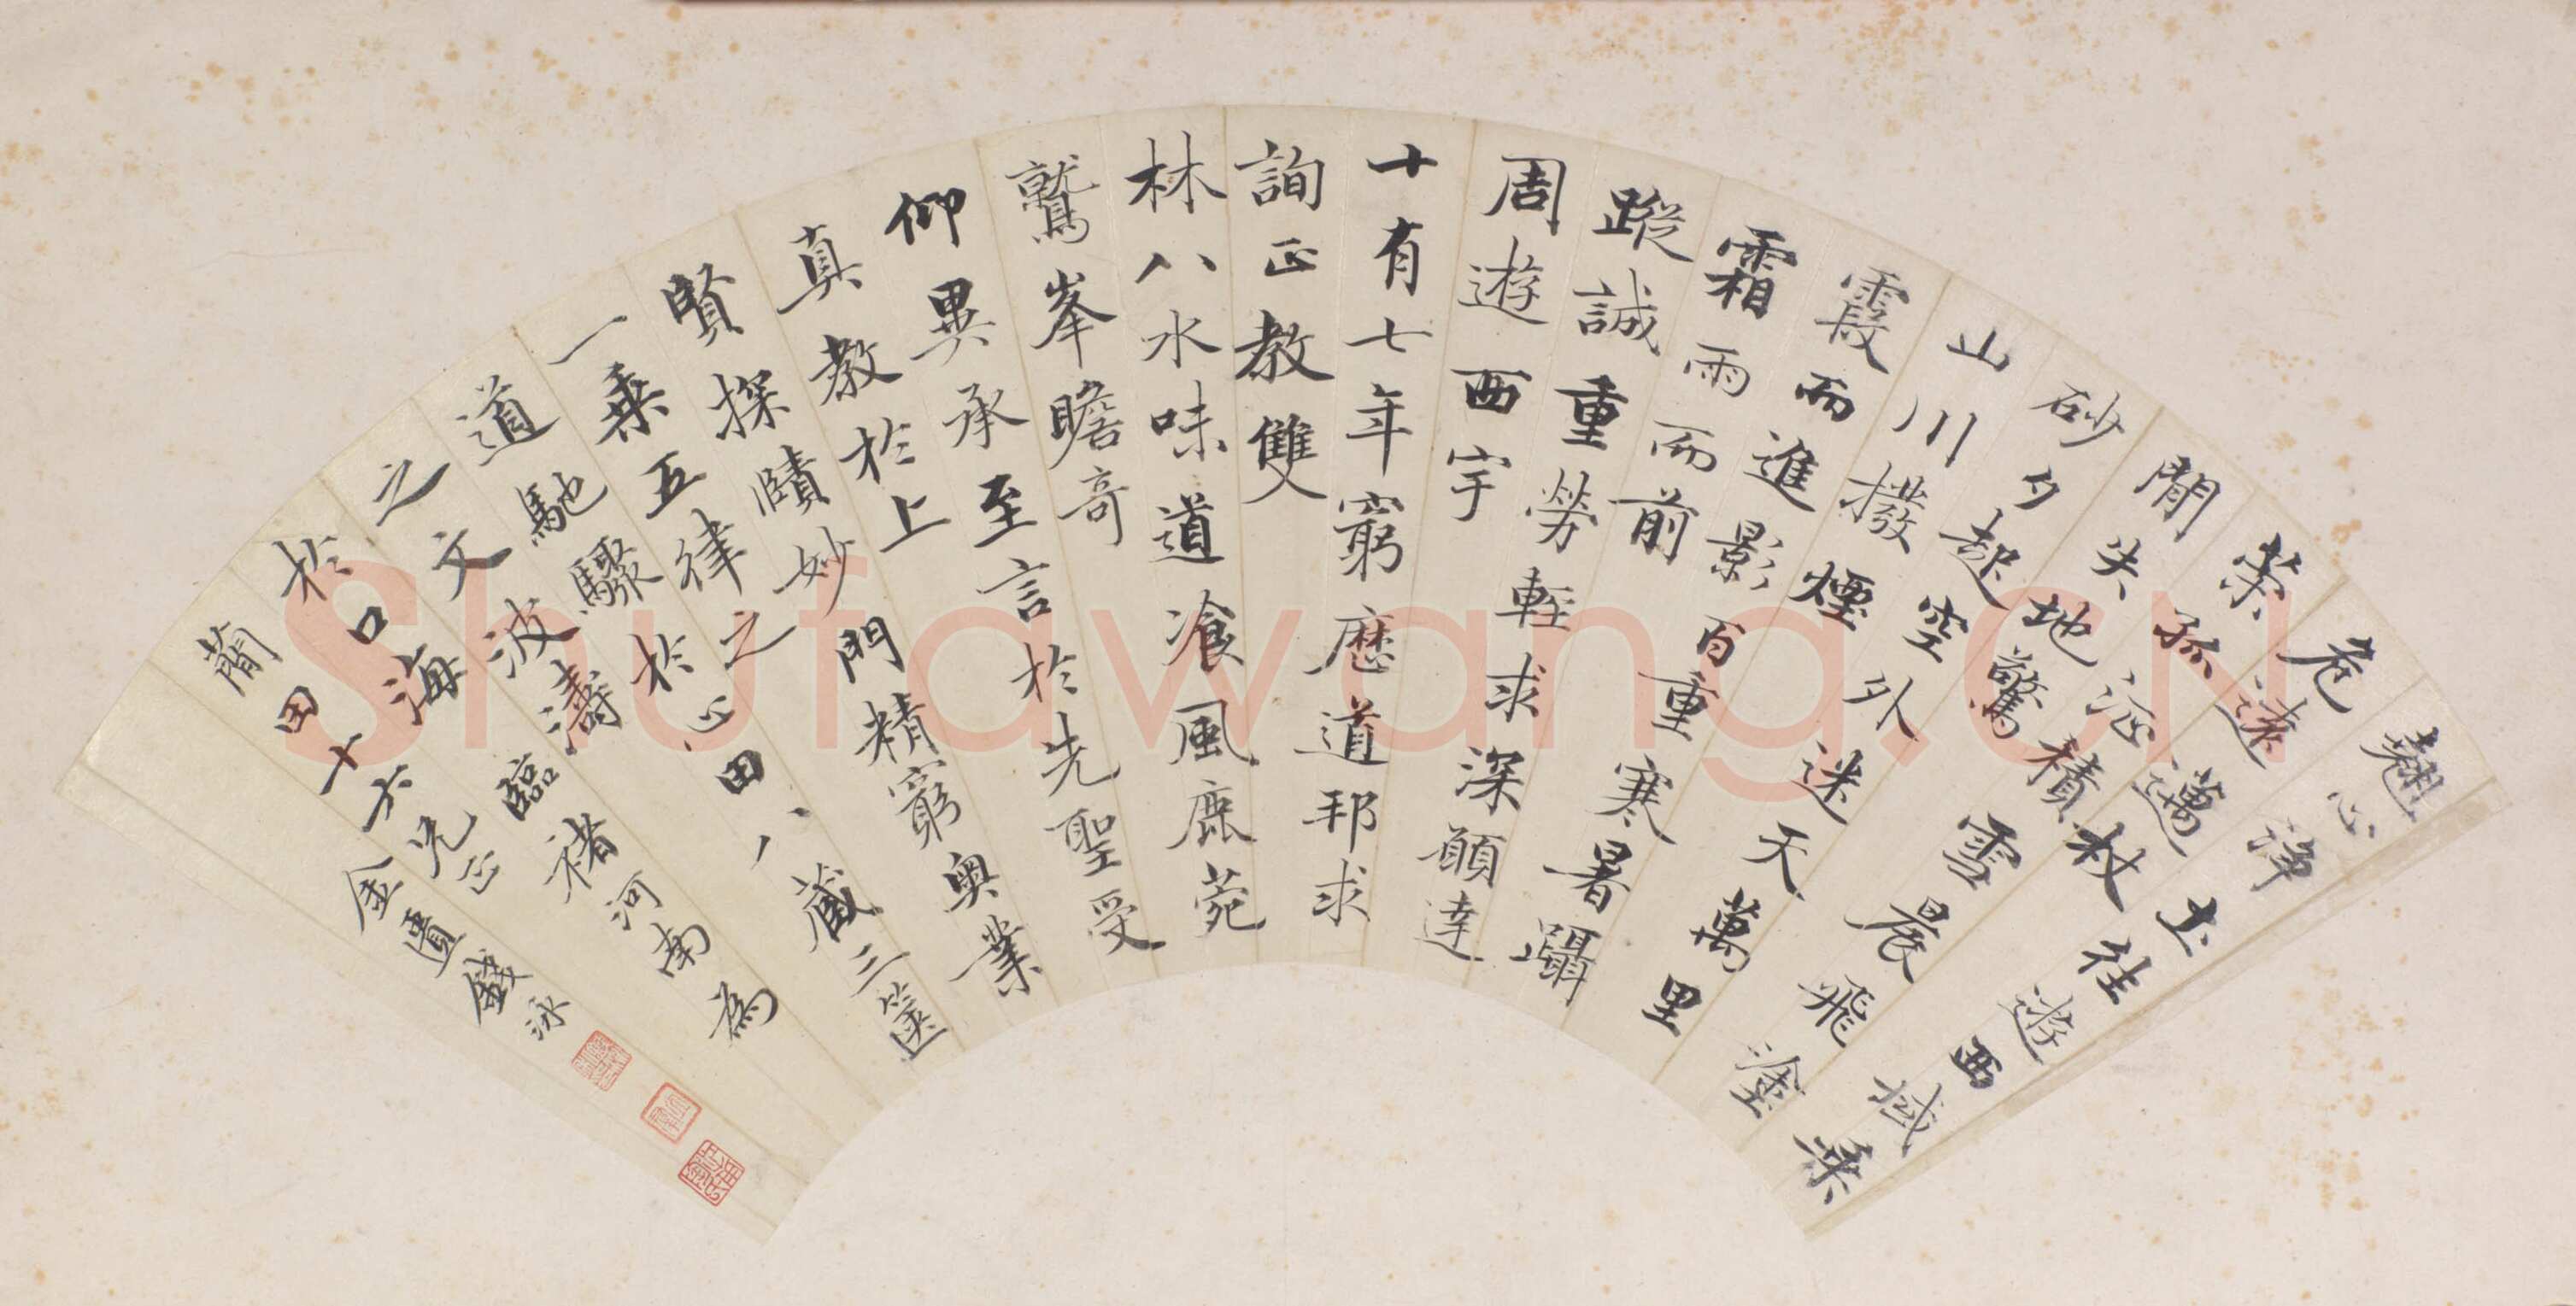 翹心淨土往遊西域乘
危遠邁杖
策孤征積雪晨飛塗
閒失地驚
砂夕起空外迷天萬里
山川撥煙
霞而進影百重寒暑躡
霜雨而前
蹤誠重勞輕求深願達
周遊西宇
十有七年窮歷道邦求
詢正教雙
林八水味道飡風鹿菀
鷲峯瞻奇
仰異承至言於先聖受
真教於上
賢探賾妙門精窮奧業
一乘五律之
道馳驟於心田八藏三篋
之文波濤
於口海臨褚河南為
蕑田十六兄正
金匱錢泳
Shufawang.CN